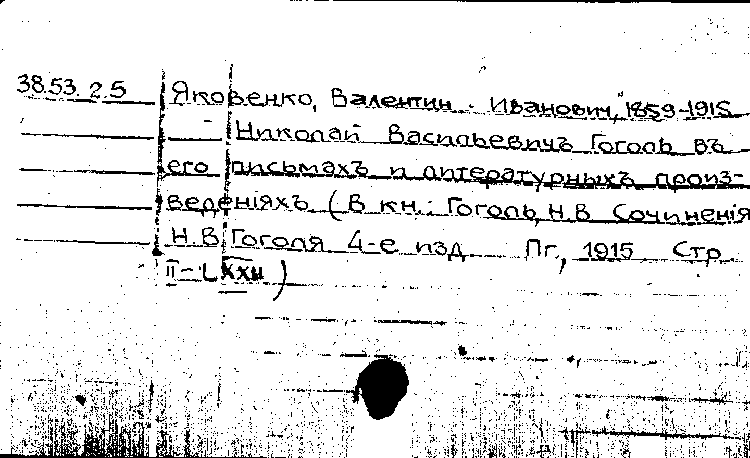 38.53.2.5 Яковенко, Валентин Иванович, 1859-1915
Николай Васильевичъ Гоголь въ
его письмахъ и литературныхъ произ-
веденіяхъ (В кн.: Гоголь, Н.В Сочиненія
Н.В Гоголя 4-е изд Пг, 1915 Стр
II-LXXII)